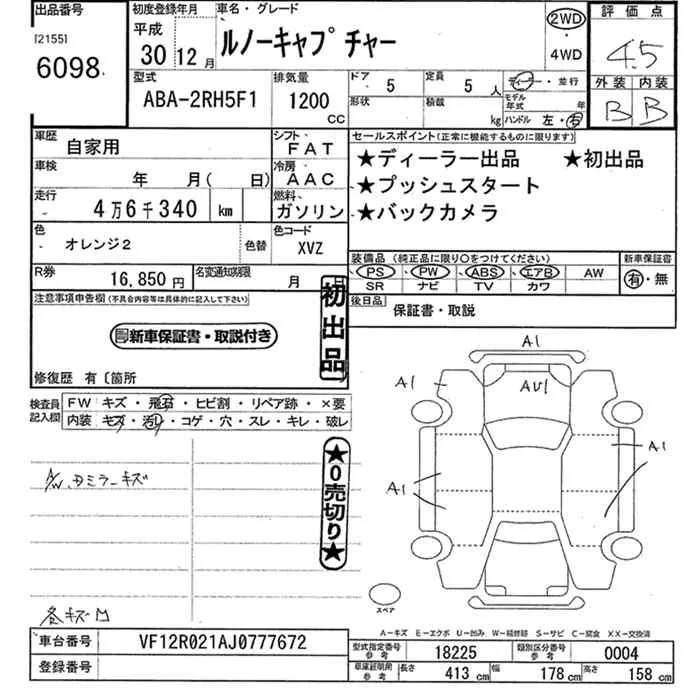 出品番号
[2155]
6098
初度登録年月
平成
30 12月
車名・グレード
ルノーキャプチャー
2WD
・
4WD
評価点
4.5
外装 内装
B B
型式
ABA-2RH5F1
排気量
1200
CC
ドア 5
定員 5 人
ディーラー・並行
形状
積載 kg
モデル年式 年
ハンドル 左・右
車歴
自家用
シフト
FAT
車検
年 月( 日)
冷房
AAC
走行
4万6千340 km
燃料
ガソリン
色
オレンジ2
色替
色コード
XVZ
R券
16,850円
名変通知期限
月 日
セールスポイント(正常に機能するものに限ります)
★ディーラー出品 ★初出品
★プッシュスタート
★バックカメラ
装備品(純正品に限り○をつけてください)
PS PW ABS エアB AW
SR ナビ TV カワ
新車保証書
有・無
後日品
保証書・取説
注意事項申告欄(不具合内容等は具体的に記入して下さい)
新車保証書・取説付き
初出品
修復歴 有〔箇所
検査員記入欄
FW キズ・飛石・ヒビ割・リペア跡・×要
内装 キズ・汚レ・コゲ・穴・スレ・キレ・破レ
A/W、ミラーキズ
★0売切り★
各キズ
A1
A1
AU1
A1
A1
スペア
A-キズ E-エクボ U-凹み W-補修跡 S-サビ C-腐食 XX-交換済
車台番号
VF12R021AJ0777672
登録番号
型式指定番号参考
18225
類別区分番号参考
0004
車庫証明用参考
長さ 413 cm
幅 178 cm
高さ 158 cm